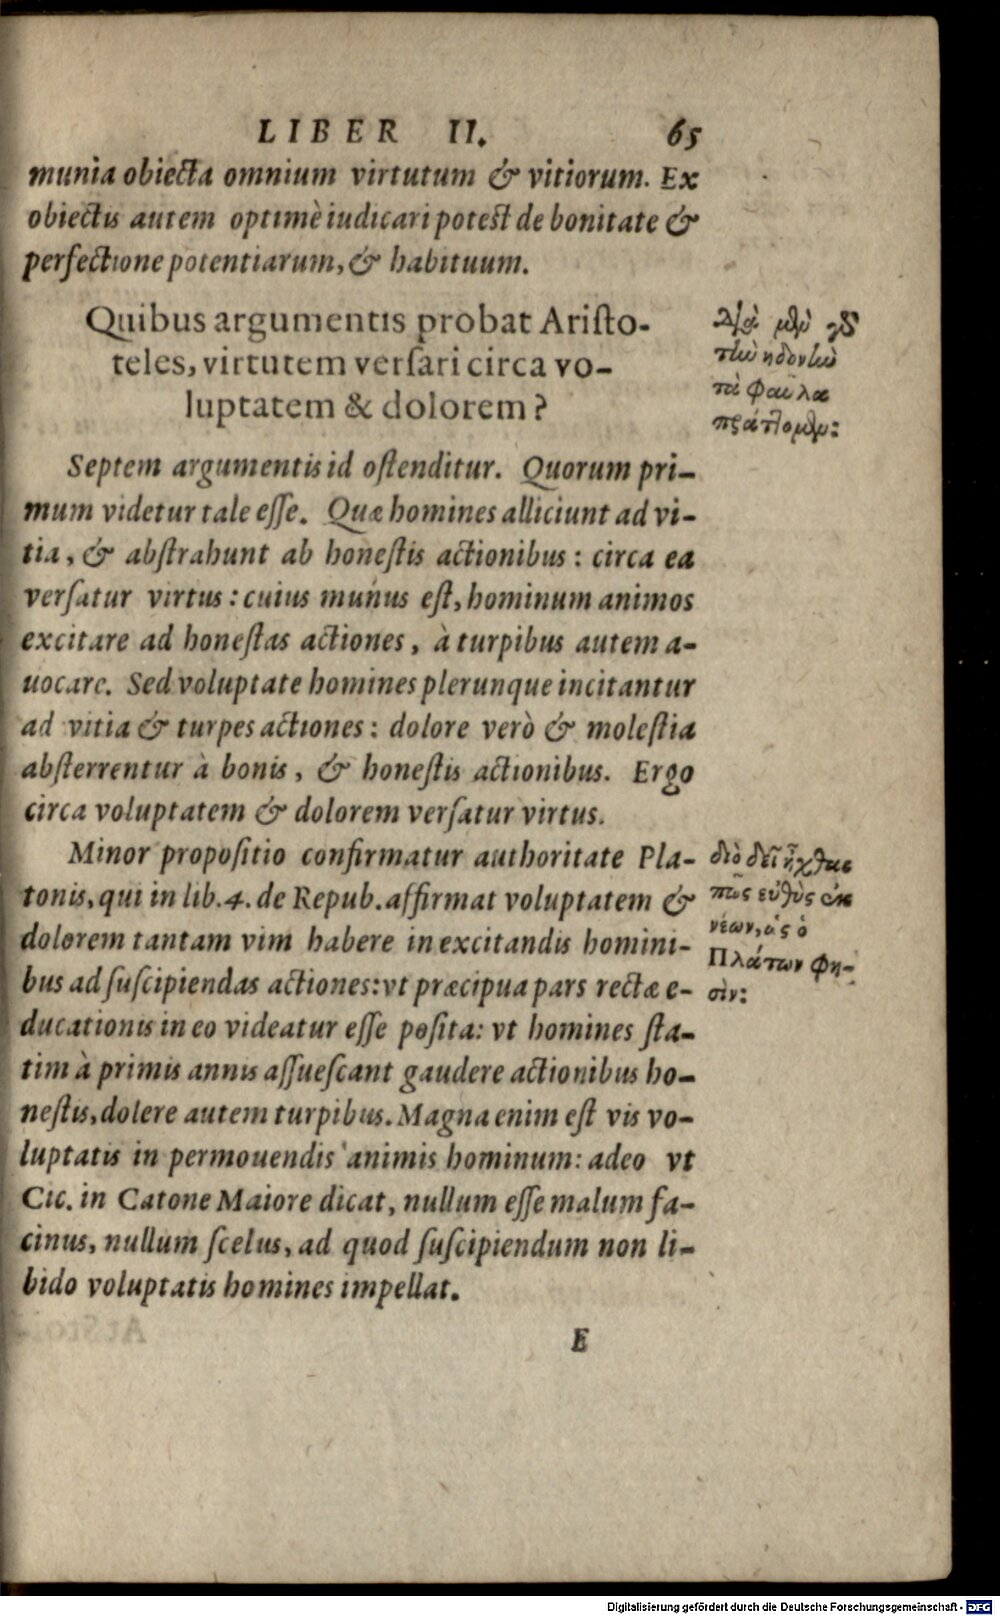 LIBER II. 65
munia obiecta omnium virtutum & vitiorum. Ex
obiectis autem optimè iudicari potest de bonitate &
perfectione potentiarum, & habituum.
Quibus argumentis probat Aristo-
teles, virtutem versari circa vo-
luptatem & dolorem?
Διὰ μὲν γὸ
τὴν ἡδονὴν
τὰ φαῦλα
πράττομεν:
Septem argumentis id ostenditur. Quorum pri-
mum videtur tale esse. Quæ homines alliciunt ad vi-
tia, & abstrahunt ab honestis actionibus: circa ea
versatur virtus: cuius munus est, hominum animos
excitare ad honestas actiones, à turpibus autem a-
uocare. Sed voluptate homines plerunque incitantur
ad vitia & turpes actiones: dolore verò & molestia
absterrentur à bonis, & honestis actionibus. Ergo
circa voluptatem & dolorem versatur virtus.
Minor propositio confirmatur authoritate Pla-
tonis, qui in lib. 4. de Repub. affirmat voluptatem &
dolorem tantam vim habere in excitandis homini-
bus ad suscipiendas actiones: vt præcipua pars rectæ e-
ducationis in eo videatur esse posita: vt homines sta-
tim à primis annis assuescant gaudere actionibus ho-
nestis, dolere autem turpibus. Magna enim est vis vo-
luptatis in permouendis animis hominum: adeo vt
Cic. in Catone Maiore dicat, nullum esse malum fa-
cinus, nullum scelus, ad quod suscipiendum non li-
bido voluptatis homines impellat.
διὸ δεῖ ἦχθαι
πῶς εὐθὺς ἐκ
νέων, ὡς ὁ
Πλάτων φη-
σὶν:
E
Digitalisierung gefördert durch die Deutsche Forschungsgemeinschaft - DFG